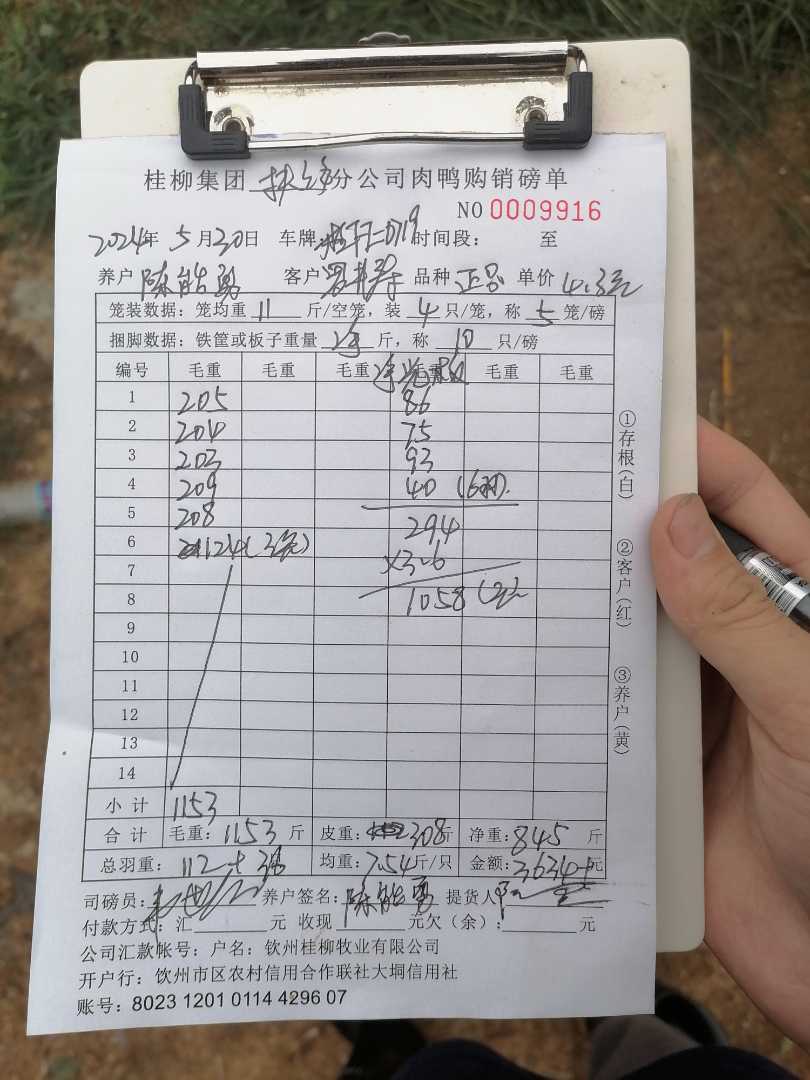 桂柳集团 扶绥 分公司肉鸭购销磅单
NO 0009916
2024年 5月20日 车牌: 时间段: 至
养户 陈能勇 客户 品种 正品 单价 4.3元
笼装数据: 笼均重 11 斤/空笼, 装 4 只/笼, 称 5 笼/磅
捆脚数据: 铁筐或板子重量 净 斤, 称 10 只/磅
编号 毛重 毛重 毛重 毛重 毛重 毛重
1 205 86
2 204 75
3 203 93
4 209 40 (6只)
5 208 294
6 124(3笼) ×3.6
7
8 1058
9
10
11
12
13
14
小计 1153
合计 毛重: 1153 斤 皮重: 308 斤 净重: 845 斤
总羽重: 112+36 均重: 7.54斤/只 金额: 3634元
司磅员: 养户签名: 陈能勇 提货人
付款方式: 汇 元 收现 元欠(余): 元
公司汇款帐号: 户名: 钦州桂柳牧业有限公司
开户行: 钦州市区农村信用合作联社大垌信用社
账号: 8023 1201 0114 4296 07
①存根(白)
②客户(红)
③养户(黄)